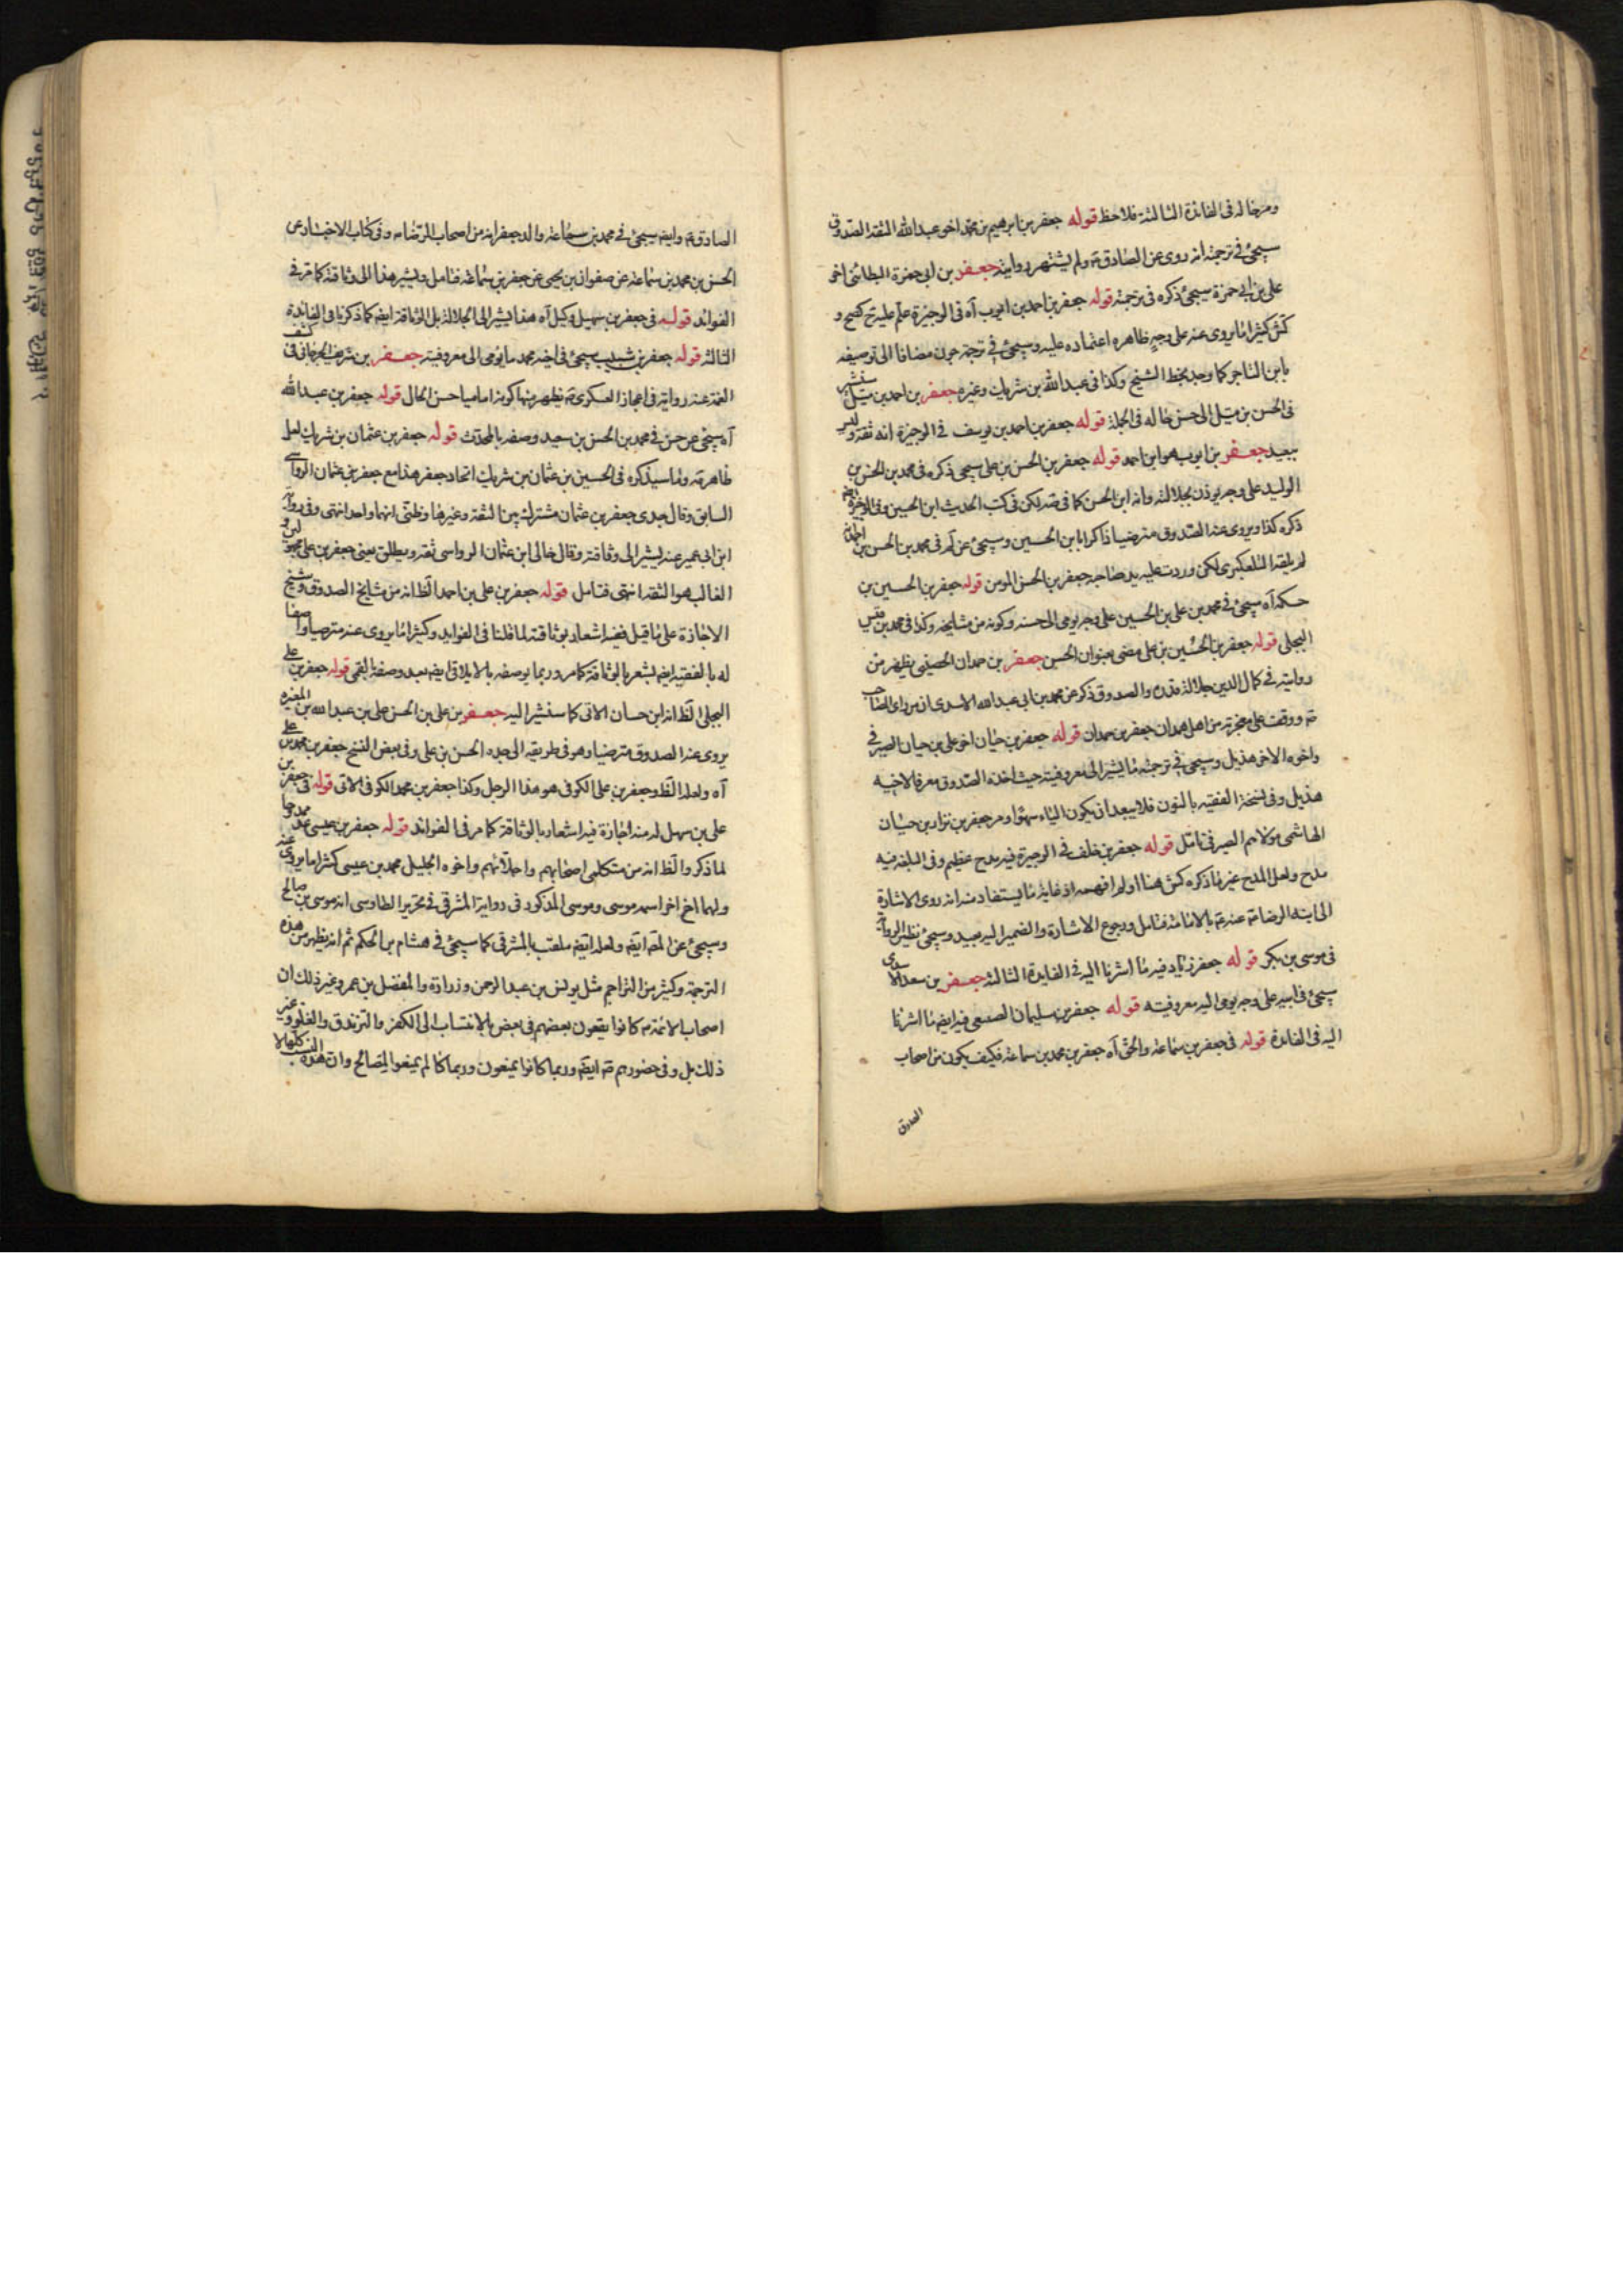 ومرخاله فى الفائدة الثالثة فلاحظ قوله جعفر بن ابرهيم بن محمد اخو عبد الله الثقة الصدوق
سيجئ فى ترجمته انه روى عن الصادق ع ولم يشتهر روايته جعفر بن ابى حمزة البطائنى اخو
على بن ابى حمزة سيجئ ذكره فى ترجمته قوله جعفر بن احمد بن ايوب آه فى الوجيزة علم عليه تح كصح و
كش كثيرا ما يروى عنه على وجه ظاهره اعتماده عليه وسيجئ فى ترجمة جون مضافا الى توصيفه
بابن التاجر كما وجد بخط الشيخ وكذا فى عبد الله بن شريك وغيره جعفر بن احمد بن متيل سنشير
فى الحسن بن متيل الى حسن حاله فى الجملة قوله جعفر بن احمد بن يوسف فى الوجيزة انه ثقة وليس
ببعيد جعفر بن ايوب هو ابن احمد قوله جعفر بن الحسن بن على سيجئ ذكره فى محمد بن الحسن بن
الوليد على وجه يوذن بجلالته وانه ابن الحسن كما فى صه لكن فى كتب الحديث ابن الحسين وفى الوجيزة ايضا
ذكره كذا ويروى عنه الصدوق مترضيا ذاكرا بابن الحسين وسيجئ عن لم فى محمد بن الحسن بن احمد انه
لم يلقه التلعكبرى لكن وردت عليه يد صاحبه جعفر بن الحسن المومن قوله جعفر بن الحسين بن
حسكه آه سيجئ فى محمد بن على بن الحسين على وجه يومى الى حسنه وكونه من مشايخه وكذا فى محمد بن قيس
البجلى قوله جعفر بن الحسين بن على مضى بعنوان الحسن جعفر بن حمدان الحصينى يظهر من
روايته فى كمال الدين جلالة قدره والصدوق ذكر عن محمد بن ابى عبد الله الاسدى انه من راى الصاحب
ع ووقف على معجزته من اهل همدان جعفر بن حمدان قوله جعفر بن حيان اخو على بن حيان الصيرفى
واخوه الاخر هذيل وسيجئ فى ترجمته ما يشير الى معروفيته حيث اخذه الصدوق معرفا لاخيه
هذيل وفى نسخة الفقيه بالنون فلا يبعد ان يكون الياء سهوا ومر جعفر بن نزار بن حيان
الهاشمى مولاهم الصيرفى تامل قوله جعفر بن خلف فى الوجيزة فيه مدح عظيم وفى البلغة فيه
مدح ولعل المدح غير ما ذكره كش هنا او لم افهمه اذ غاية ما يستفاد منه انه روى الاشارة
الى ابنه الرضا ع عنه ع بالامامة فتامل ورجوع الاشارة والضمير اليه بعيد وسيجئ نظير الرواية
فى موسى بن بكر قوله جعفر زياد فيه ما اشرنا اليه فى الفايدة الثالثة جعفر بن سعد الاسدى
سيجئ فى ابيه على وجه يومى اليه معروفيته قوله جعفر بن سليمان الضبعى فيه ايضا ما اشرنا
اليه فى الفايدة قوله فى جعفر بن سماعة والحق آه جعفر بن محمد بن سماعة فكيف يكون من اصحاب
الصادق
الصادق ع وايضا سيجئ فى محمد بن سماعة والد جعفر انه من اصحاب الرضا ع وفى كتاب الاخبار عن
الحسن بن محمد بن سماعة عن صفوان بن يحيى عن جعفر بن سماعة فتامل ويشير هذا الى وثاقته كما مر فى
الفوائد قوله فى جعفر بن سهيل وكيل آه هذا يشير الى الجلالة بل الوثاقة ايضا كما ذكرنا فى الفائدة
الثالثة قوله جعفر بن شبيب سيجئ فى اخيه محمد ما يومى الى معروفيته جعفر بن شريف الجرجانى فى كشف
الغمة عنه رواية فى اعجاز العسكرى ع يظهر منها كونه اماميا حسن الحال قوله جعفر بن عبد الله
آه سيجئ عن جش فى محمد بن الحسن بن سعيد وصفه بالمحدث قوله جعفر بن عثمان بن شريك لعل
ظاهر قه وما سيذكره فى الحسين بن عثمان بن شريك اتحاد جعفر هذا مع جعفر بن عثمان الرواسى
السابق وقال جدى جعفر بن عثمان مشترك بين الثقة وغيرها وظنى انهما واحد انتهى وفى رواية
ابن ابى عمير عنه يشير الى وثاقته وقال خالى ابن عثمان الرواسى ثقة ويطلق يعنى جعفر بن على مجهول وليس
الغالب هو الثقة انتهى فتامل قوله جعفر بن على بن احمد الظ انه من مشايخ الصدوق وشيخ
الاجازة على ما قيل ففيه اشعار بوثاقته لما قلنا فى الفوايد وكثيرا ما يروى عنه مترضيا واصفا
له بالفقيه ايضا يشعر بالوثاقة كما مر وربما يوصفه بالايلاقى ايضا بعد وصفه بالقمى قوله جعفر بن على
البجلى الظ انه ابن حسان الاتى كما سنشير اليه جعفر بن على بن الحسن على بن عبد الله بن المغيرة
يروى عنه الصدوق مترضيا وهو فى طريقه الى جده الحسن بن على وفى بعض النسخ جعفر بن محمد بن على
آه ولعله الظ وجعفر بن على الكوفى هو هذا الرجل وكذا جعفر بن محمد الكوفى الاتى قوله فى جعفر بن
على بن سهل له منه اجازة فيه اشعار بالوثاقة كما مر فى الفوائد قوله جعفر بن عيسى عد ممدوحا
لما ذكر والظ انه من متكلمى اصحابهم واجلائهم واخوه الجليل محمد بن عيسى كثيرا ما يروى عنه
ولهما اخ اخر اسمه موسى وموسى المذكور فى رواية المشرقى فى تحرير الطاوسى انه موسى بن صالح
وسيجئ عن المص ايضا ولعله ايضا ملقب بالمشرقى كما سيجئ فى هشام بن الحكم ثم انه يظهر من هذه
الترجمة وكثير من التراجم مثل يونس بن عبد الرحمن وزرارة والمفضل بن عمر وغير ذلك ان
اصحاب الائمة ع كانوا يقعون بعضهم فى بعض بالانتساب الى الكفر والتزندق والغلو وغير
ذلك بل وفى حضورهم ع ايضا وربما كانوا يمنعون وربما كانا لم يمنعوا لمصالح وان هذه النسب كلها لا